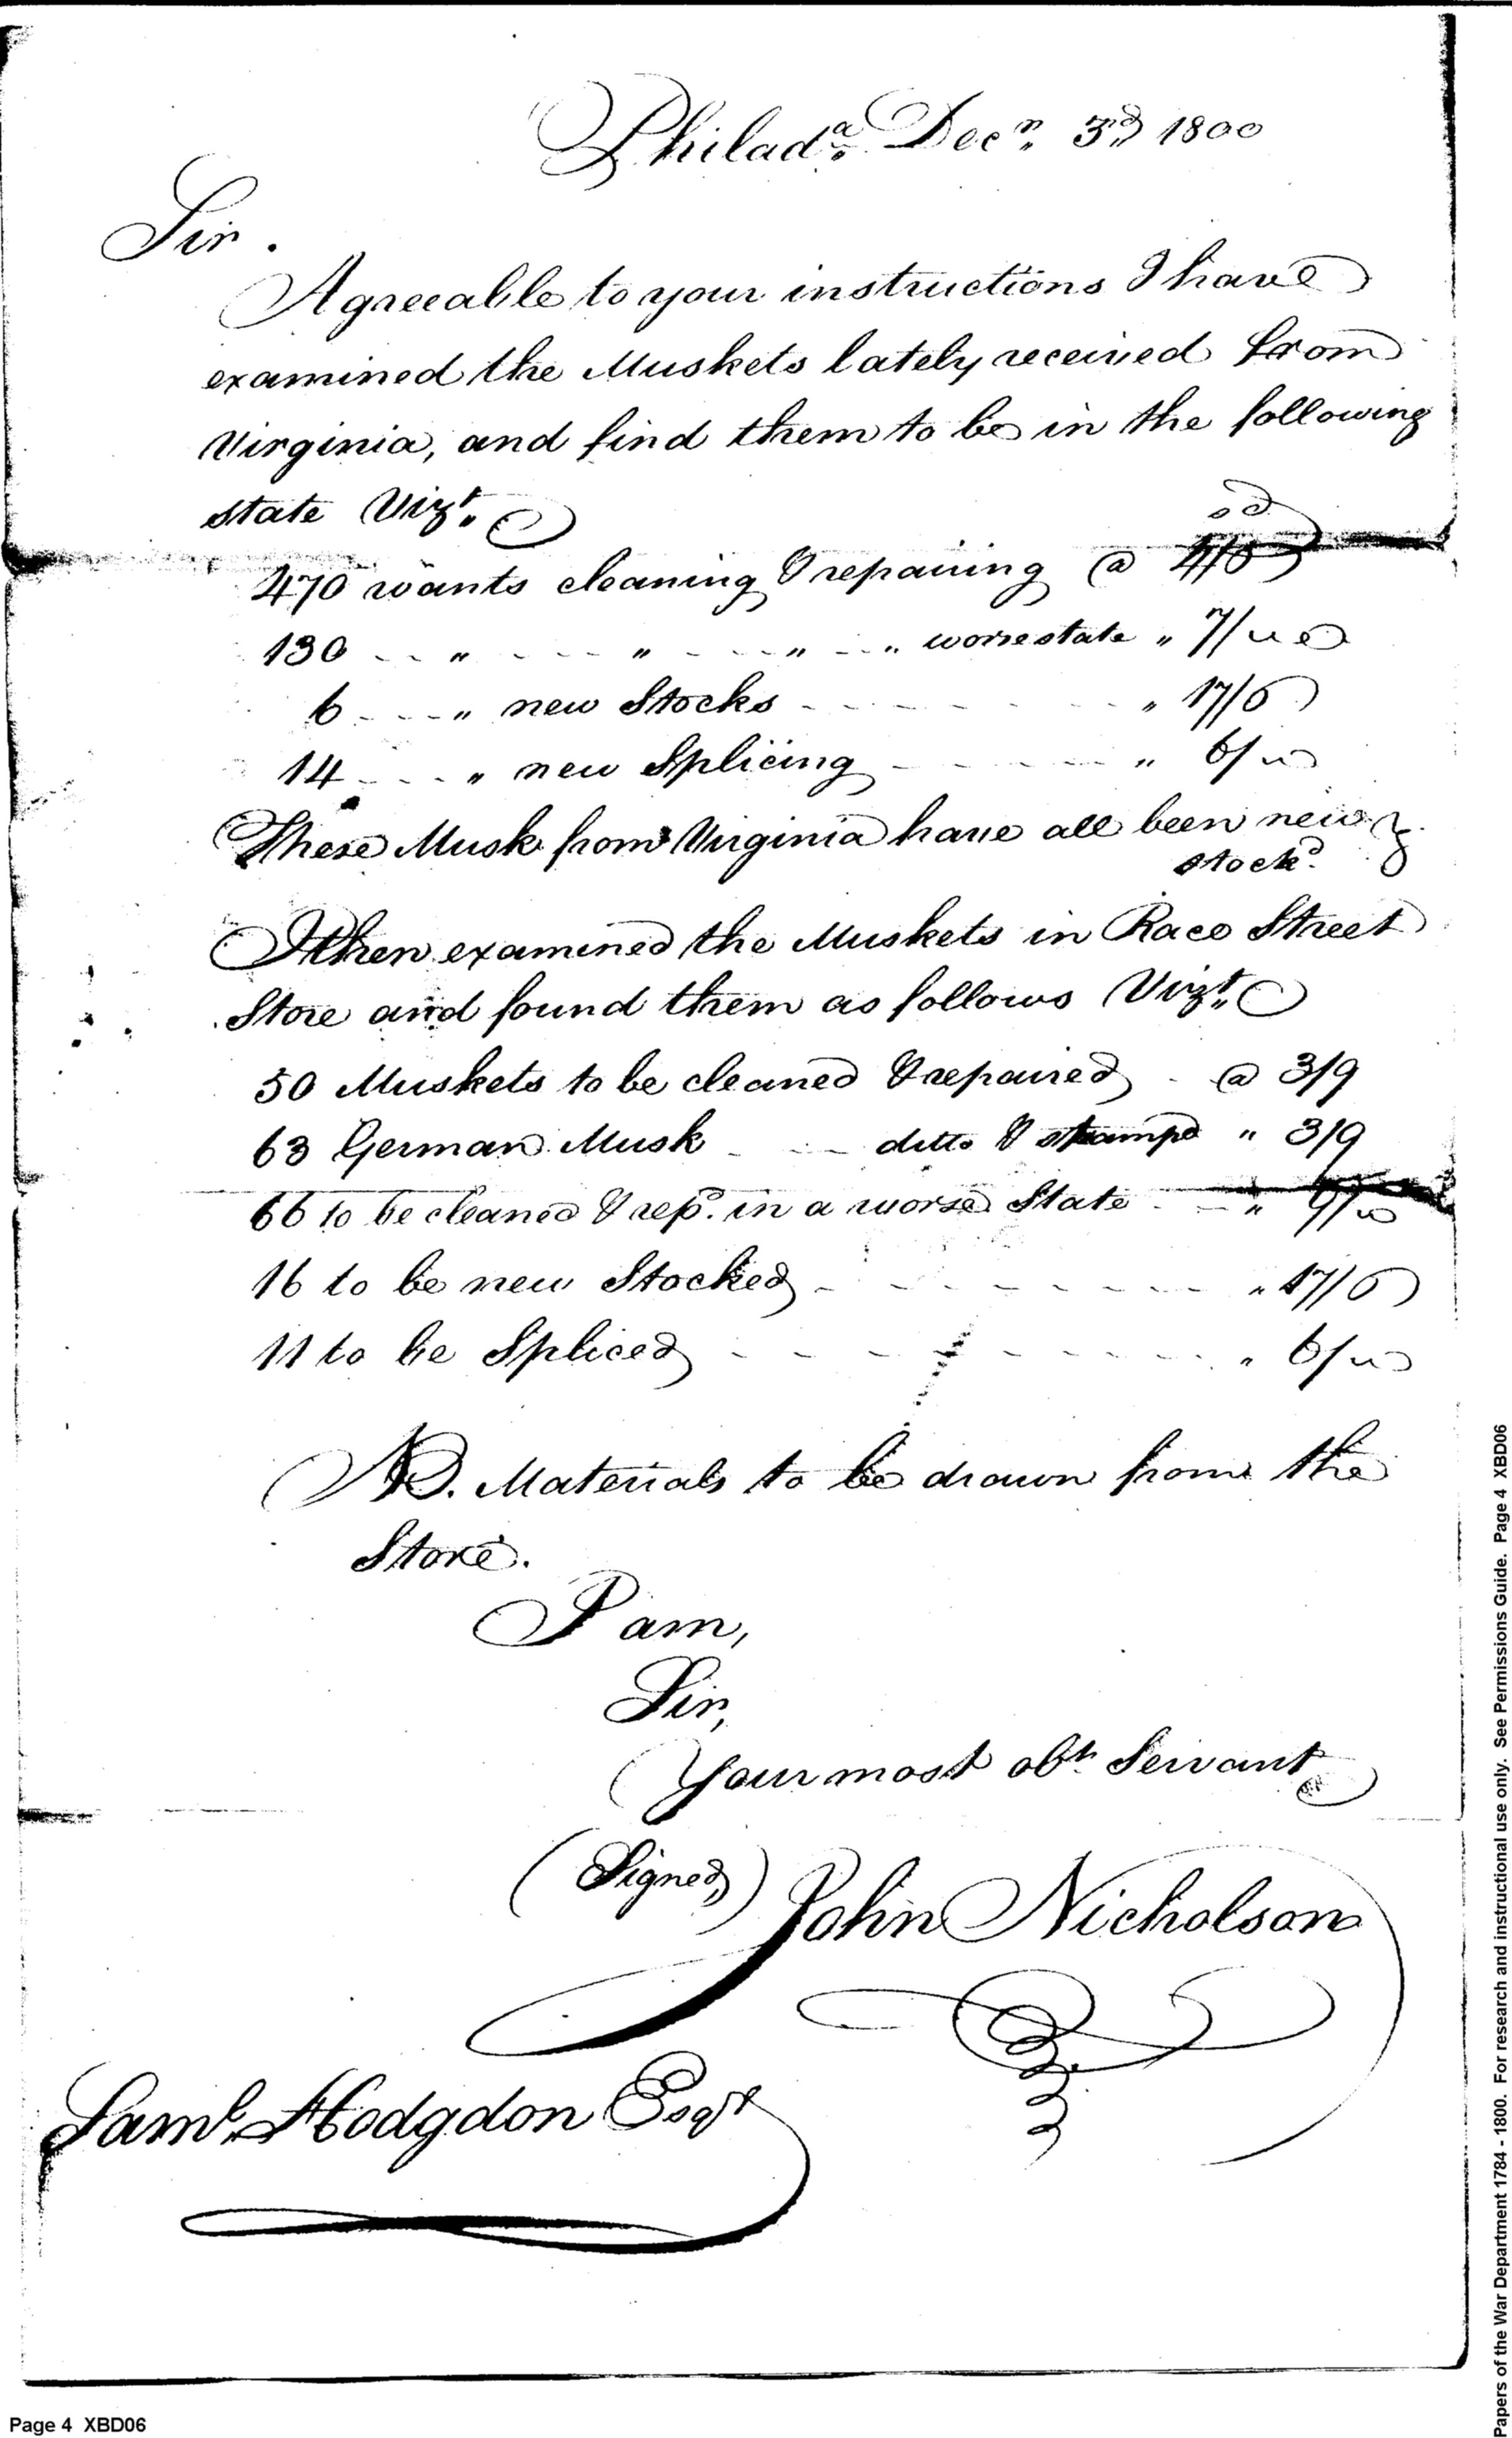 Philad.a Decr. 3d 1800
Sir.
Agreeable to your instructions I have
examined the Muskets lately received from
Virginia, and find them to be in the following
state Vizt.
s d
470 wants cleaning & repairing @ 4/6
130 " " " " worse state " 7/
6 " new Stocks " 17/6
14 " new Splicing " 6/
These Musk from Virginia have all been new
stockd.
I then examined the Muskets in Race Street
Store and found them as follows Vizt.
50 Muskets to be cleaned & repaired @ 3/9
63 German Musk ditto & stampd " 3/9
66 to be cleaned & repd. in a worse State "
16 to be new Stocked " 17/6
11 to be Spliced " 6/
NB. Materials to be drawn from the
Store.
I am,
Sir,
Your most obt Servant
(Signed) John Nicholson
Saml. Hodgdon Esqr
Page 4 XBD06
Papers of the War Department 1784 - 1800. For research and instructional use only. See Permissions Guide. Page 4 XBD06